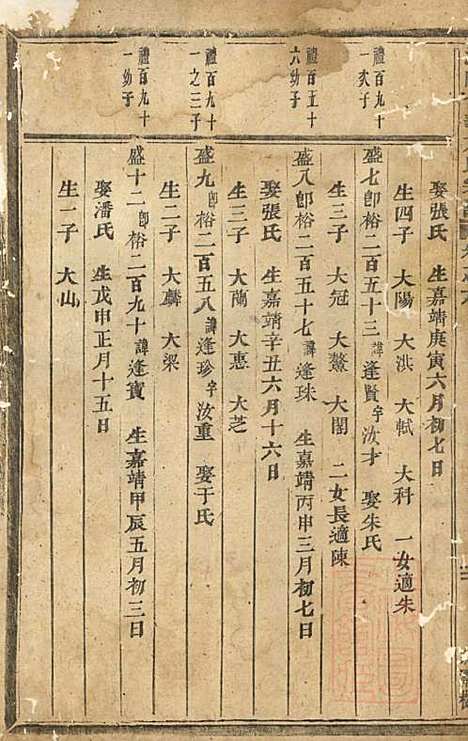 娶張氏 生嘉靖庚寅六月初七日
生四子 大陽 大洪 大軾 大科 一女適朱
禮百九十一次子
盛七卽裕二百五十三諱逢賢字汝才 娶朱氏
生三子 大冠 大鰲 大閣 二女長適陳
禮百五十六幼子
盛八卽裕二百五十七諱逢珠 生嘉靖丙申三月初七日
娶張氏 生嘉靖辛丑六月十六日
生三子 大蘭 大惠 大芝
禮百九十一之三子
盛九卽裕二百五八諱逢珍字汝重 娶于氏
生二子 大麟 大梁
禮百九十一幼子
盛十二卽裕二百九十諱逢寶 生嘉靖甲辰五月初三日
娶潘氏 生戊申正月十五日
生一子 大山